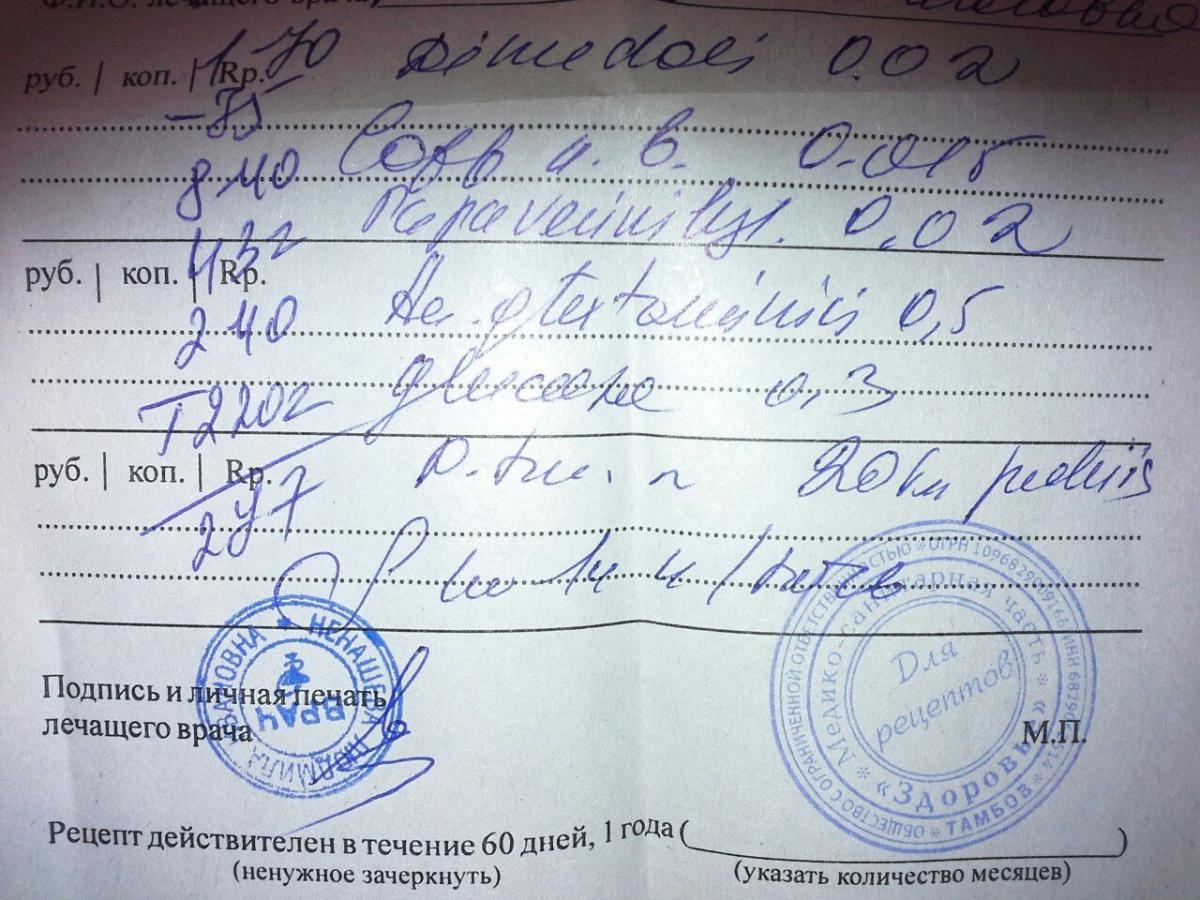 Ф.И.О. лечащего врача
руб. | коп. | Rp. 1 70 Dimedoli 0.02
- 75
8.40 Coff n. b. 0.015
Papaverini hyd. 0,02
руб. | коп. | Rp. 4 32
2 40 Ac. glutaminici 0,5
glucosae 0,3
T 2202
руб. | коп. | Rp. D.t.d. n 20 in pulvis
247
S по 1
НЕНАШЕВА ЛЮДМИЛА ИВАНОВНА
ВРАЧ
Подпись и личная печать
лечащего врача
ОБЩЕСТВО С ОГРАНИЧЕННОЙ ОТВЕТСТВЕННОСТЬЮ * ОГРН 1096829009166 ИНН 6829 514 * ТАМБОВ *
Медико-санитарная часть * «Здоровье» *
Для рецептов
М.П.
Рецепт действителен в течение 60 дней, 1 года ( )
(ненужное зачеркнуть) (указать количество месяцев)